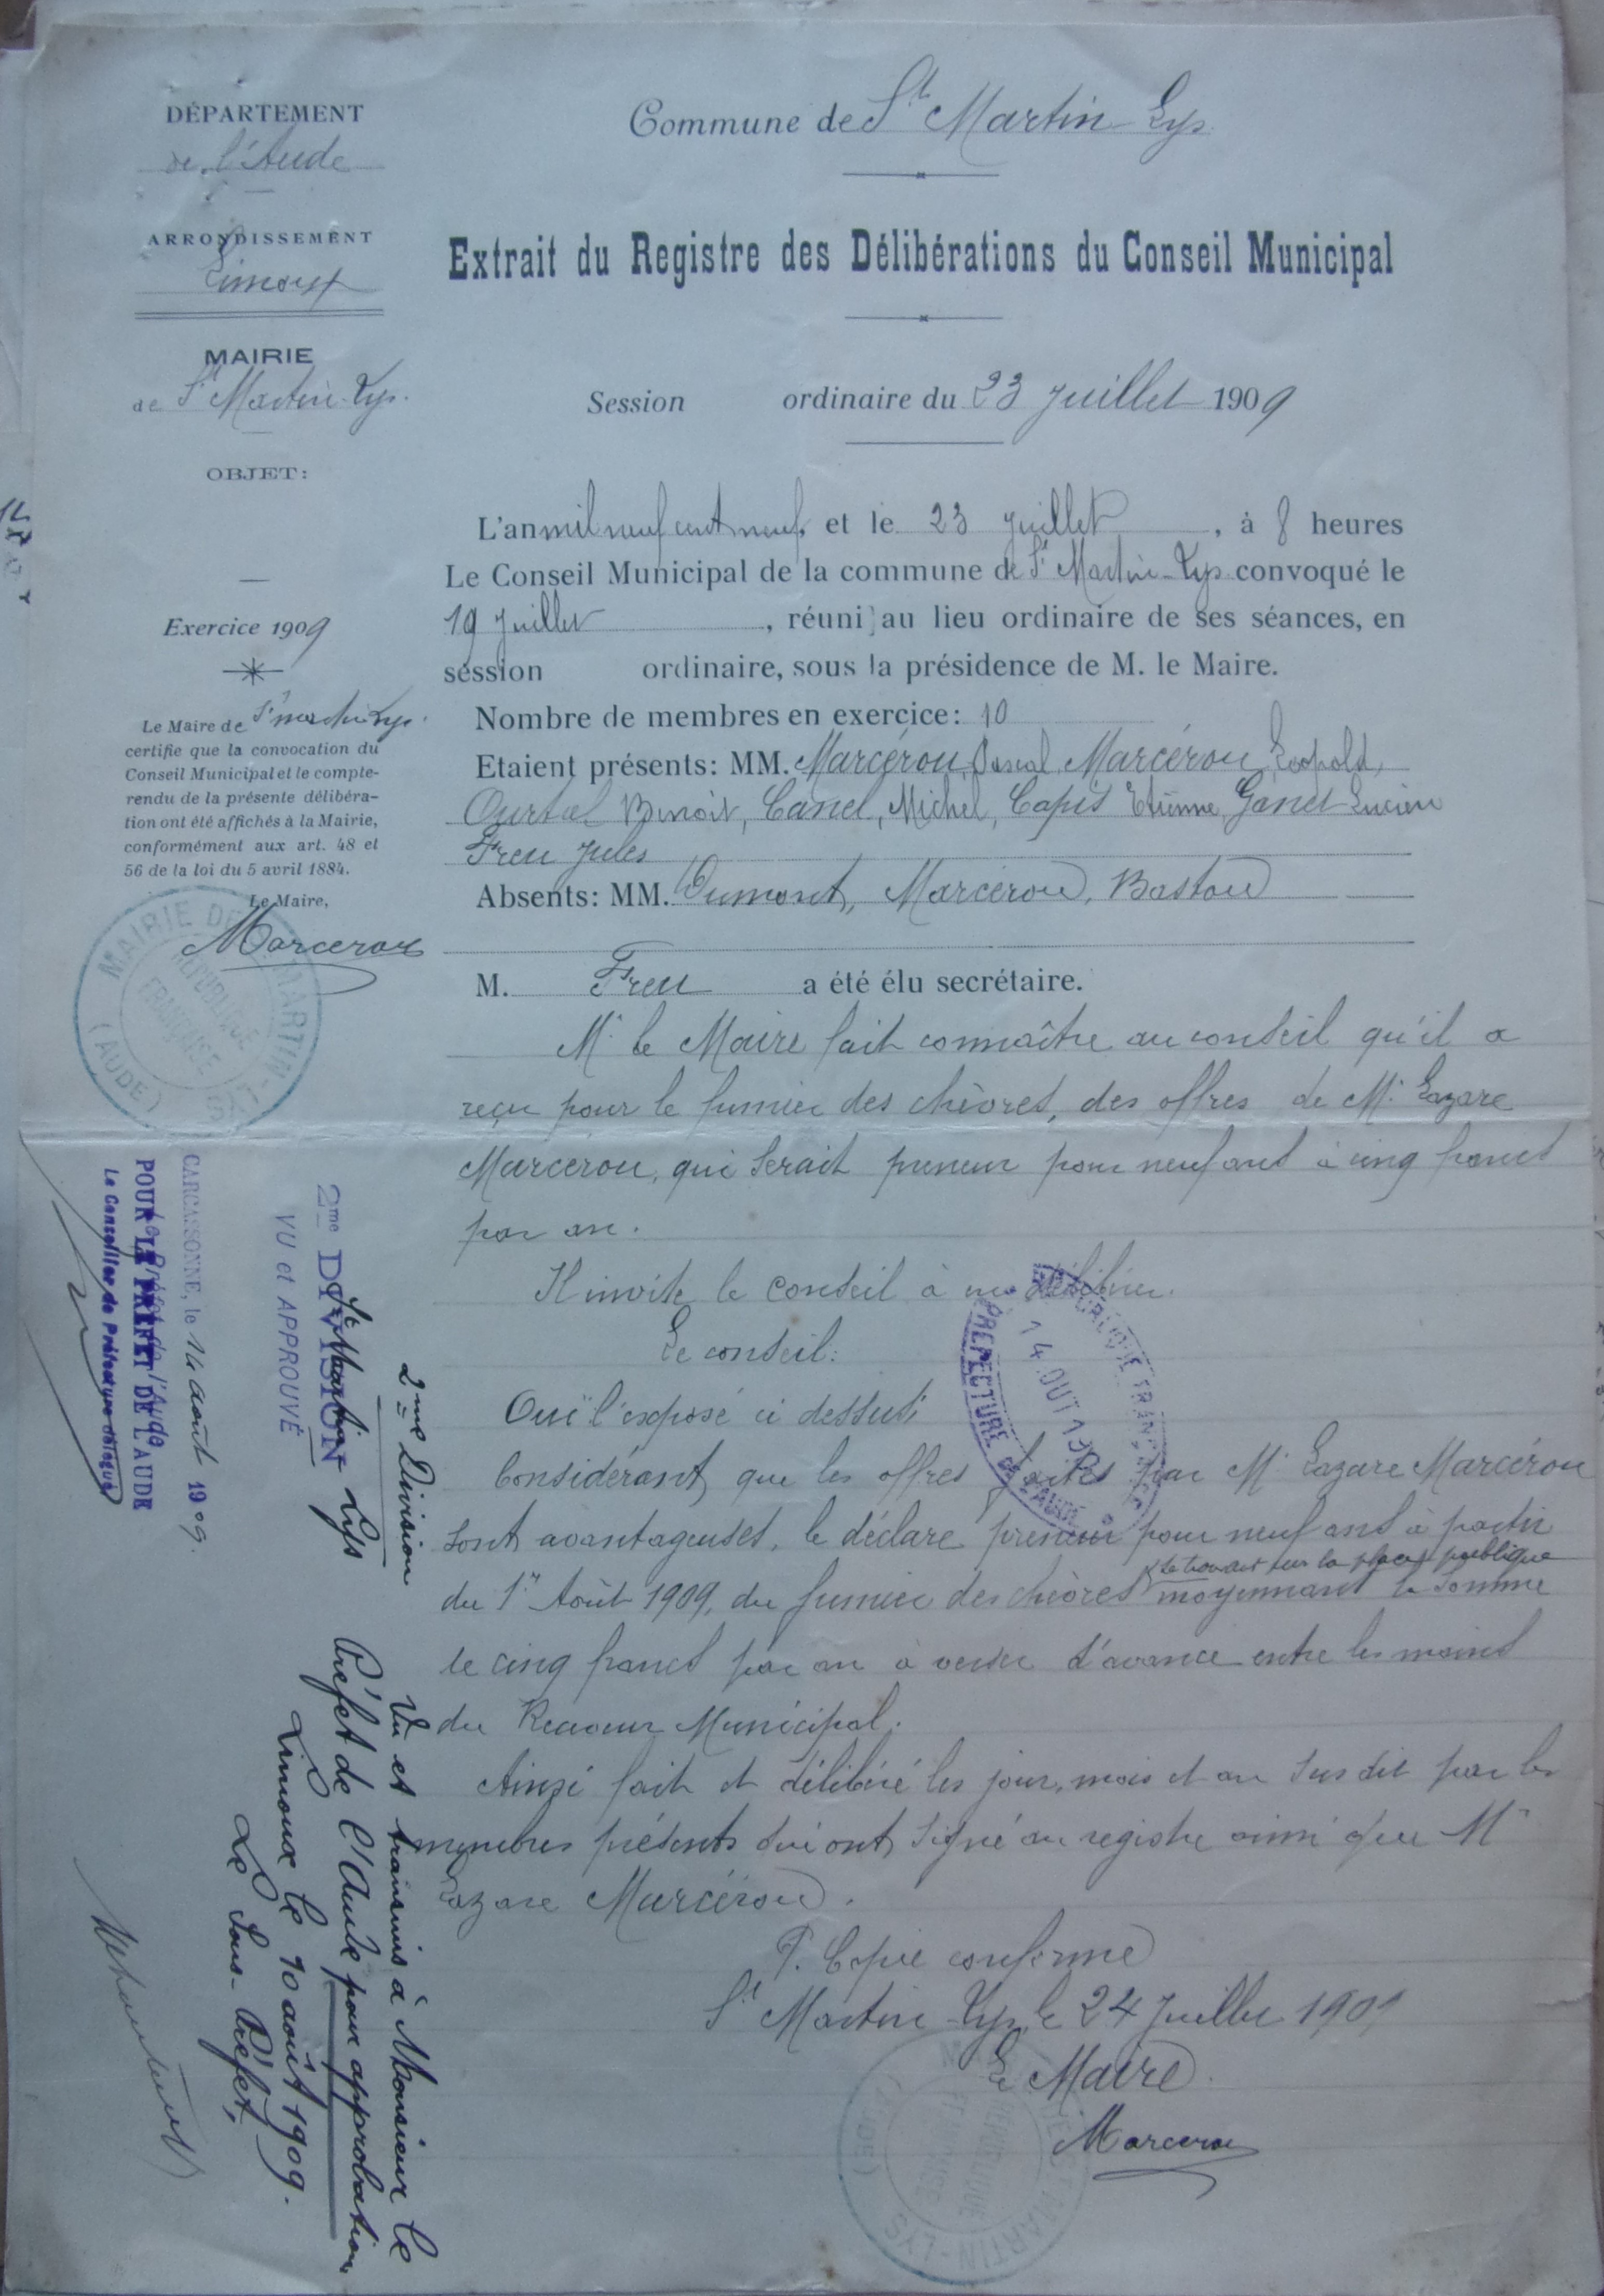 DÉPARTEMENT
de l'Aude
ARRONDISSEMENT
Limoux
MAIRIE
de St Martin-Lys.
OBJET:
Exercice 1909
Le Maire de St Martin Lys.
certifie que la convocation du
Conseil Municipal et le compte-
rendu de la présente délibéra-
tion ont été affichés à la Mairie,
conformément aux art. 48 et
56 de la loi du 5 avril 1884.
Le Maire,
Marcerou
MAIRIE DE ST MARTIN-LYS
RÉPUBLIQUE FRANÇAISE
(AUDE)
Commune de St Martin Lys
Extrait du Registre des Délibérations du Conseil Municipal
Session ordinaire du 23 Juillet 1909
L'an mil neuf cent neuf, et le 23 Juillet, à 8 heures
Le Conseil Municipal de la commune de St Martin-Lys convoqué le
19 Juillet, réuni au lieu ordinaire de ses séances, en
session ordinaire, sous la présidence de M. le Maire.
Nombre de membres en exercice: 10
Etaient présents: MM. Marcérou Pascal, Marcérou Léopold,
Benoit, Canel, Michel, Etienne, Lucien
Freu Jules
Absents: MM. Dumont, Marcérou, Bastou
M. Freu a été élu secrétaire.
Mr le Maire fait connaître au conseil qu'il a
reçu pour le fumier des chèvres, des offres de Mr Lazare
Marcérou, qui serait preneur pour neuf ans à cinq francs
par an.
Il invite le conseil à en délibérer.
Le conseil:
Ouï l'exposé ci dessus;
Considérant que les offres faites par Mr Lazare Marcérou
sont avantageuses, le déclare preneur pour neuf ans à partir
se trouvant sur la place publique
du 1er Août 1909, du fumier des chèvres moyennant la somme
de cinq francs par an à verser d'avance entre les mains
du Receveur Municipal.
Ainsi fait et délibéré les jour, mois et an sus dit par les
membres présents qui ont signé au registre ainsi que Mr
Lazare Marcérou.
P. Copie conforme
St Martin-Lys le 24 Juillet 1909
Le Maire
Marcerou
RÉPUBLIQUE FRANÇAISE
14 AOUT 1909
PRÉFECTURE DE L'AUDE
MAIRIE DE ST MARTIN-LYS
(AUDE)
2me Division
St Martin Lys
2me DIVISION
VU et APPROUVÉ
CARCASSONNE, le 14 août 1909.
POUR LE PRÉFET DE L'AUDE
Le Conseiller de Préfecture délégué
Vu et transmis à Monsieur le
Préfet de l'Aude pour approbation
Limoux le 10 août 1909.
Le Sous-Préfet,